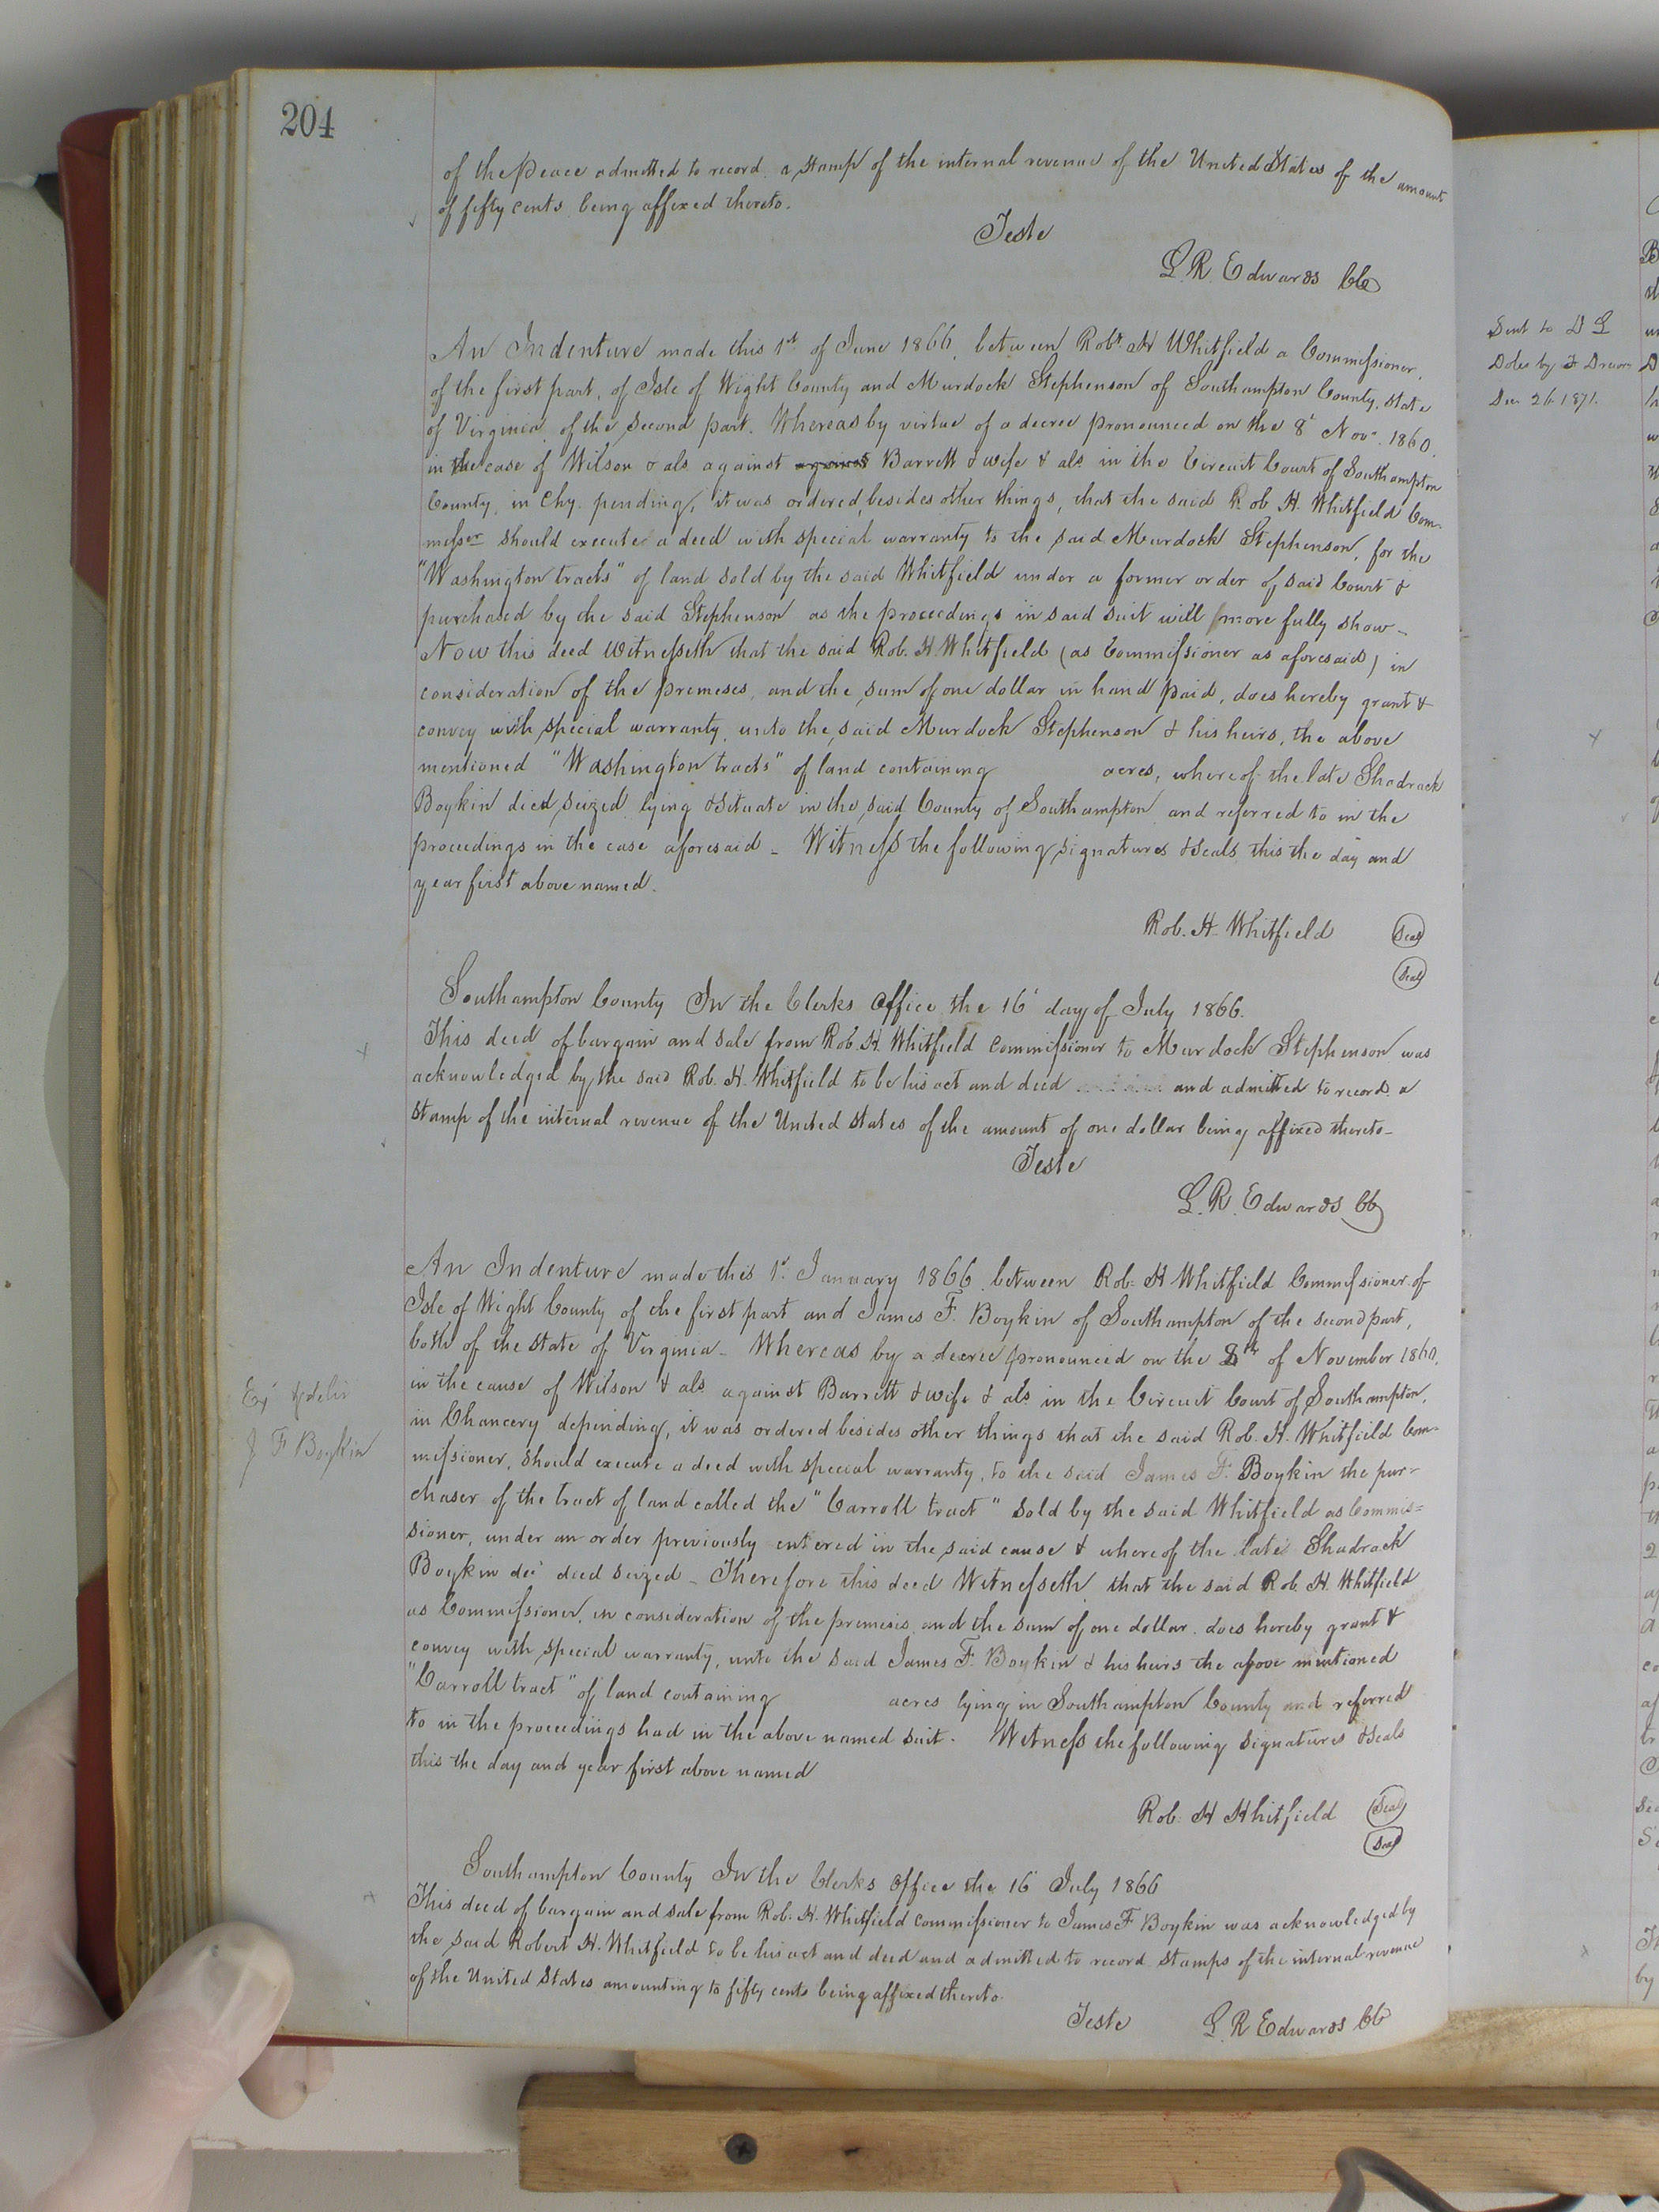 204
of the peace admitted to record. a stamp of the internal revenue of the United States of the amount
of fifty cents being affixed thereto.
Teste
L. R. Edwards CC
An Indenture made this 1st of June 1866, between Robt H Whitfield a Commissioner,
of the first part, of Isle of Wight County and Murdock Stephenson of Southampton County, state
of Virginia, of the second part. Whereas by virtue of a decree pronounced on the 8' Nov. 1860.
in the case of Wilson & als against against Barrett & wife & als in the Circuit Court of Southampton
County, in Chy. pending, it was ordered, besides other things, that the said Rob H. Whitfield Com-
misser should execute a deed with special warranty to the said Murdock Stephenson, for the
"Washington tracts" of land sold by the said Whitfield under a former order of said Court &
purchased by the said Stephenson as the proceedings in said suit will more fully show -
Now this deed Witnesseth that the said Rob. H. Whitfield (as Commissioner as aforesaid) in
consideration of the premeses, and the sum of one dollar in hand paid, does hereby grant &
convey with special warranty, unto the said Murdock Stephenson & his heirs, the above
mentioned "Washington tracts" of land containing acres, whereof the late Shadrack
Boykin died, seized lying & situate in the said County of Southampton and referred to in the
proceedings in the case aforesaid - Witness the following signatures & seals, this the day and
year first above named.
Rob. H. Whitfield Seal
Seal
Southampton County In the Clerks Office the 16' day of July 1866.
This deed of bargain and sale from Rob. H. Whitfield Commissioner to Murdock Stephenson was
acknowledged by the said Rob. H. Whitfield to be his act and deed and admitted to record. a
stamp of the internal revenue of the United States of the amount of one dollar being affixed thereto -
Teste
L. R. Edwards CC
An Indenture made this 1st January 1866 between Rob. H Whitfield Commissioner of
Isle of Wight County of the first part and James F. Boykin of Southampton of the second part,
both of the state of Virginia - Whereas by a decree pronounced on the 8th of November 1860,
in the cause of Wilson & als against Barrett & wife & als in the Circuit Court of Southampton,
in Chancery depending, it was ordered besides other things that the said Rob. H. Whitfield Com-
missioner, should execute a deed with special warranty, to the said James F. Boykin the pur-
chaser of the tract of land called the "Carroll tract" sold by the said Whitfield as Commis=
sioner, under an order previously entered in the said cause & whereof the late Shadrack
Boykin dec' died seized - Therefore this deed Witnesseth, that the said Rob. H. Whitfield
as Commissioner, in consideration of the premisis, and the sum of one dollar, does hereby grant &
convey with special warranty, unto the said James F. Boykin & his heirs the above mentioned
"Carroll tract" of land containing acres lying in Southampton County and referred
to in the proceedings had in the above named suit. Witness the following signatures & seals
this the day and year first above named
Rob. H Whitfield Seal
Seal
Southampton County In the Clerks Office the 16' July 1866
This deed of bargain and sale from Rob. H. Whitfield Commissioner to James F Boykin was acknowledged by
the said Robert H. Whitfield to be his act and deed and admitted to record stamps of the internal revenue
of the United States amounting to fifty cents being affixed thereto.
Teste L. R Edwards CC
J F Boykin
Sent to
Dec 26 1871.